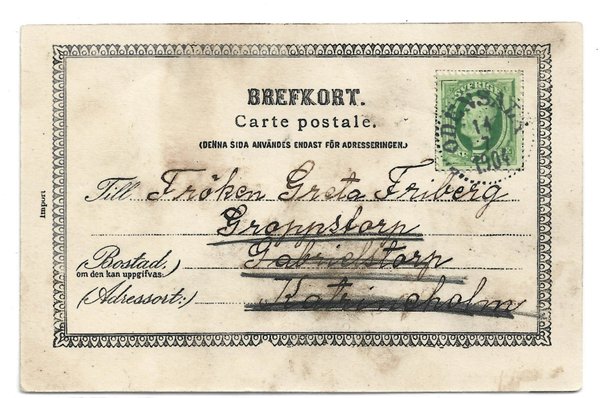 BREFKORT.
Carte postale.
(DENNA SIDA ANVÄNDES ENDAST FÖR ADRESSERINGEN.)
SVERIGE
ODENSALA
14
1904
Import
Till Fröken Greta Friberg
Groppstorp
(Bostad,) Gabrielstorp
om den kan uppgifvas:
(Adressort:) Katrineholm